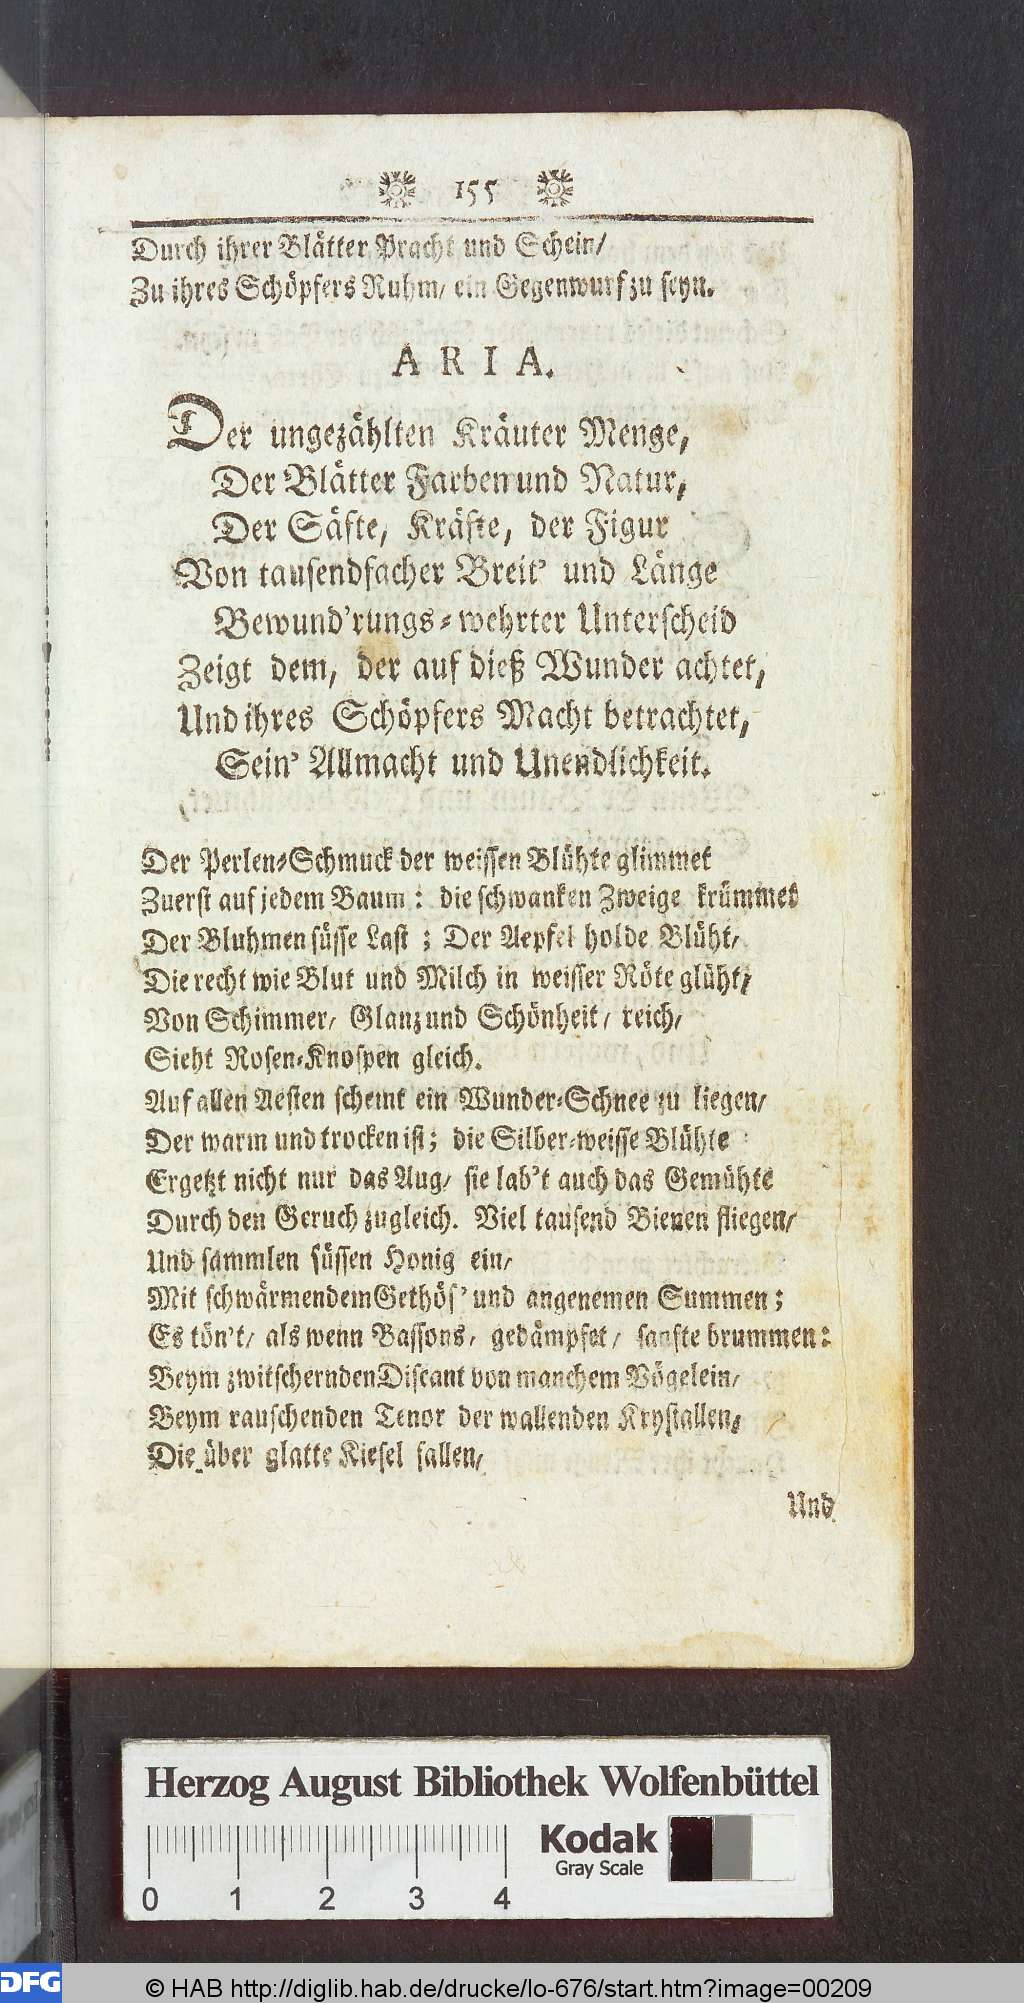 155
Durch ihrer Blätter Pracht und Schein/
Zu ihres Schöpfers Ruhm/ ein Gegenwurf zu seyn.
ARIA.
Der ungezählten Kräuter Menge,
Der Blätter Farben und Natur,
Der Säfte, Kräfte, der Figur
Von tausendfacher Breit' und Länge
Bewund'rungs-wehrter Unterscheid
Zeigt dem, der auf dieß Wunder achtet,
Und ihres Schöpfers Macht betrachtet,
Sein' Allmacht und Unendlichkeit.
Der Perlen-Schmuck der weissen Blühte glimmet
Zuerst auf jedem Baum: die schwanken Zweige krümmet
Der Bluhmen süsse Last; Der Aepfel holde Blüht/
Die recht wie Blut und Milch in weisser Röte glüht,
Von Schimmer/ Glanz und Schönheit/ reich/
Sieht Rosen-Knospen gleich.
Auf allen Aesten scheint ein Wunder-Schnee zu liegen/
Der warm und trocken ist; die Silber-weisse Blühte
Ergetzt nicht nur das Aug/ sie lab't auch das Gemühte
Durch den Geruch zugleich. Viel tausend Bienen fliegen/
Und sammlen süssen Honig ein/
Mit schwärmendem Gethös' und angenemen Summen;
Es tön't/ als wenn Bassons/ gedämpfet/ sanfte brummen:
Beym zwitschernden Discant von manchem Vögelein/
Beym rauschenden Tenor der wallenden Krystallen,
Die über glatte Kiesel fallen/
Und
Herzog August Bibliothek Wolfenbüttel
Kodak
Gray Scale
0 1 2 3 4
DFG
© HAB http://diglib.hab.de/drucke/lo-676/start.htm?image=00209